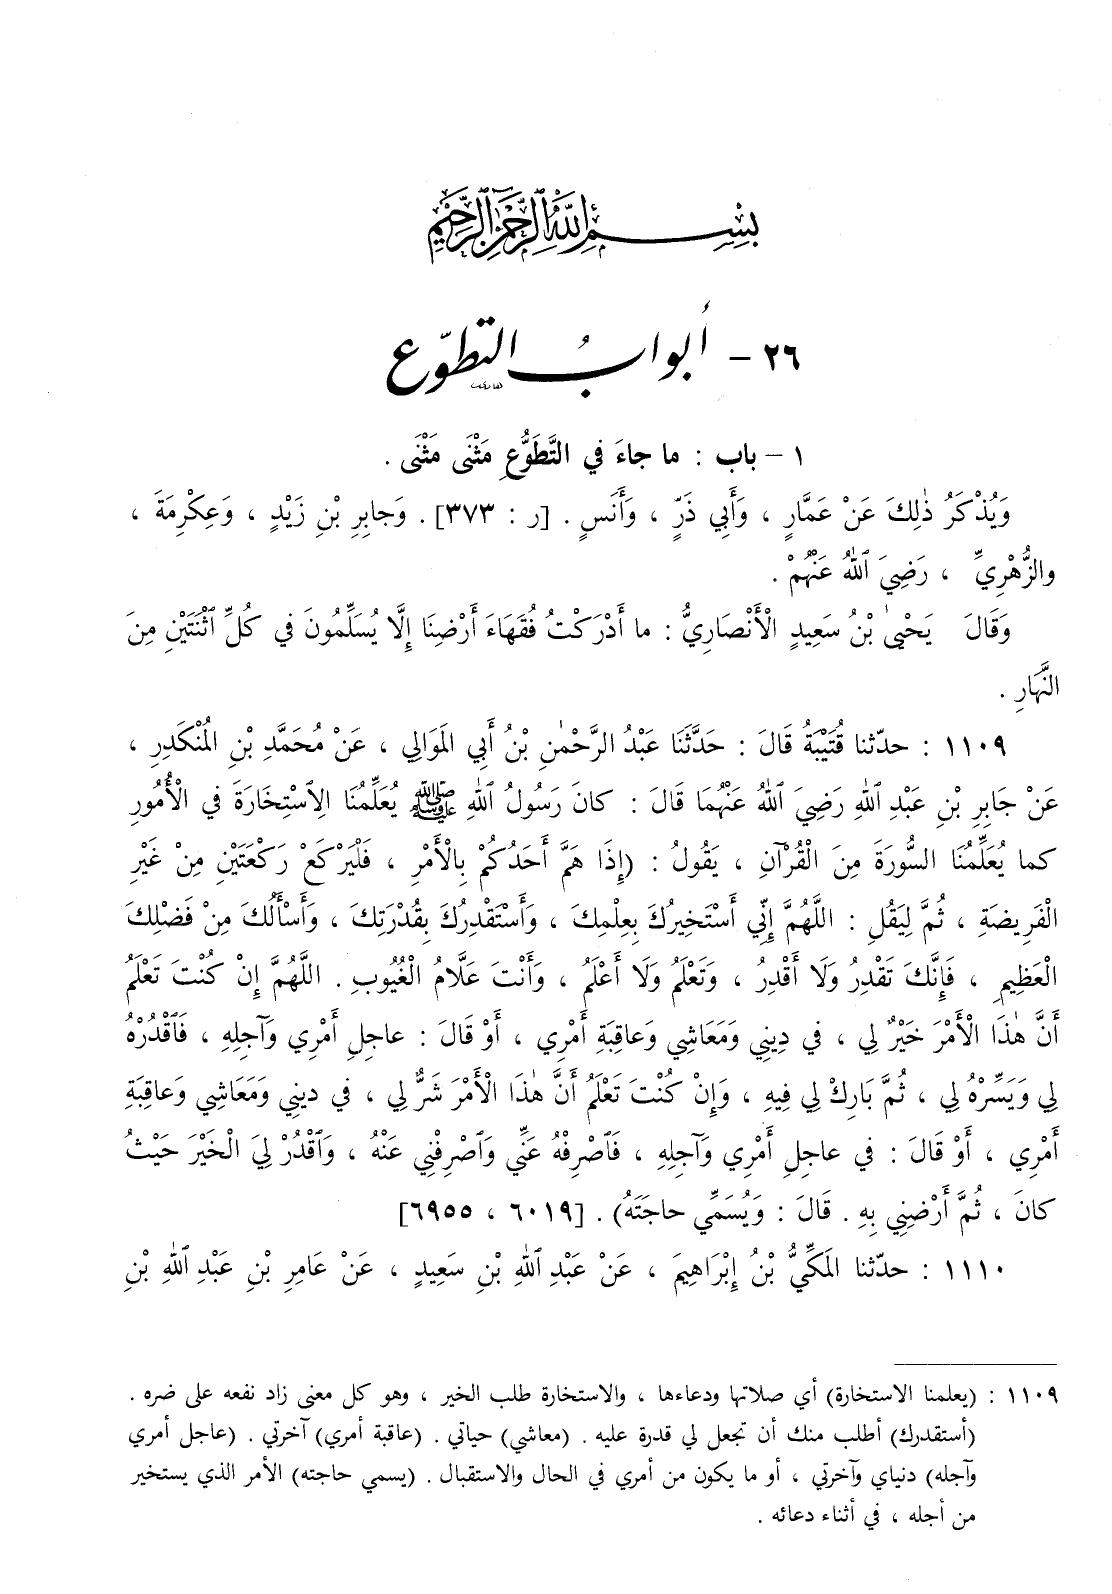 بِسْمِ اللهِ الرَّحْمٰنِ الرَّحِيمِ
٢٦ – أبوابُ التطوّع
١ – باب : ما جاءَ في التَّطَوُّعِ مَثْنَى مَثْنَى .
وَيُذْكَرُ ذٰلِكَ عَنْ عَمَّارٍ ، وَأَبِي ذَرٍّ ، وَأَنَسٍ . [ر : ٣٧٣] . وَجابِرِ بْنِ زَيْدٍ ، وَعِكْرِمَةَ ،
والزُّهْرِيِّ ، رَضِيَ ٱللهُ عَنْهُمْ .
وَقَالَ يَحْيىٰ بْنُ سَعِيدٍ الْأَنْصَارِيُّ : ما أَدْرَكْتُ فُقَهَاءَ أَرْضِنَا إِلَّا يُسَلِّمُونَ في كُلِّ ٱثْنَتَيْنِ مِنَ
النَّهَارِ .
١١٠٩ : حدّثنا قُتَيْبَةُ قَالَ : حَدَّثَنَا عَبْدُ الرَّحْمٰنِ بْنُ أَبِي المَوَالِي ، عَنْ مُحَمَّدِ بْنِ المُنْكَدِرِ ،
عَنْ جَابِرِ بْنِ عَبْدِ ٱللهِ رَضِيَ ٱللهُ عَنْهُمَا قَالَ : كانَ رَسُولُ ٱللهِ ﷺ يُعَلِّمُنَا الِٱسْتِخَارَةَ في الْأُمُورِ
كما يُعَلِّمُنَا السُّورَةَ مِنَ الْقُرْآنِ ، يَقُولُ : (إِذَا هَمَّ أَحَدُكُمْ بِالْأَمْرِ ، فَلْيَرْكَعْ رَكْعَتَيْنِ مِنْ غَيْرِ
الْفَرِيضَةِ ، ثُمَّ لِيَقُلِ : اللَّهُمَّ إِنِّي أَسْتَخِيرُكَ بِعِلْمِكَ ، وَأَسْتَقْدِرُكَ بِقُدْرَتِكَ ، وَأَسْأَلُكَ مِنْ فَضْلِكَ
الْعَظِيمِ ، فَإِنَّكَ تَقْدِرُ وَلَا أَقْدِرُ ، وَتَعْلَمُ وَلَا أَعْلَمُ ، وَأَنْتَ عَلَّامُ الْغُيُوبِ . اللَّهُمَّ إِنْ كُنْتَ تَعْلَمُ
أَنَّ هٰذَا الْأَمْرَ خَيْرٌ لِي ، في دِينِي وَمَعَاشِي وَعاقِبَةِ أَمْرِي ، أَوْ قَالَ : عاجِلِ أَمْرِي وَآجِلِهِ ، فَٱقْدُرْهُ
لِي وَيَسِّرْهُ لِي ، ثُمَّ بَارِكْ لِي فِيهِ ، وَإِنْ كُنْتَ تَعْلَمُ أَنَّ هٰذَا الْأَمْرَ شَرٌّ لِي ، في دينِي وَمَعَاشِي وَعاقِبَةِ
أَمْرِي ، أَوْ قَالَ : في عاجِلِ أَمْرِي وَآجِلِهِ ، فَٱصْرِفْهُ عَنِّي وَٱصْرِفْنِي عَنْهُ ، وَٱقْدُرْ لِيَ الْخَيْرَ حَيْثُ
كانَ ، ثُمَّ أَرْضِنِي بِهِ . قَالَ : وَيُسَمِّي حاجَتَهُ) . [٦٠١٩ ، ٦٩٥٥]
١١١٠ : حدّثنا المَكِّيُّ بْنُ إِبْرَاهِيمَ ، عَنْ عَبْدِ ٱللهِ بْنِ سَعِيدٍ ، عَنْ عَامِرِ بْنِ عَبْدِ ٱللهِ بْنِ
١١٠٩ : (يعلمنا الاستخارة) أي صلاتها ودعاءها ، والاستخارة طلب الخير ، وهو كل معنى زاد نفعه على ضره .
(أستقدرك) أطلب منك أن تجعل لي قدرة عليه . (معاشي) حياتي . (عاقبة أمري) آخرتي . (عاجل أمري
وآجله) دنياي وآخرتي ، أو ما يكون من أمري في الحال والاستقبال . (يسمي حاجته) الأمر الذي يستخير
من أجله ، في أثناء دعائه .